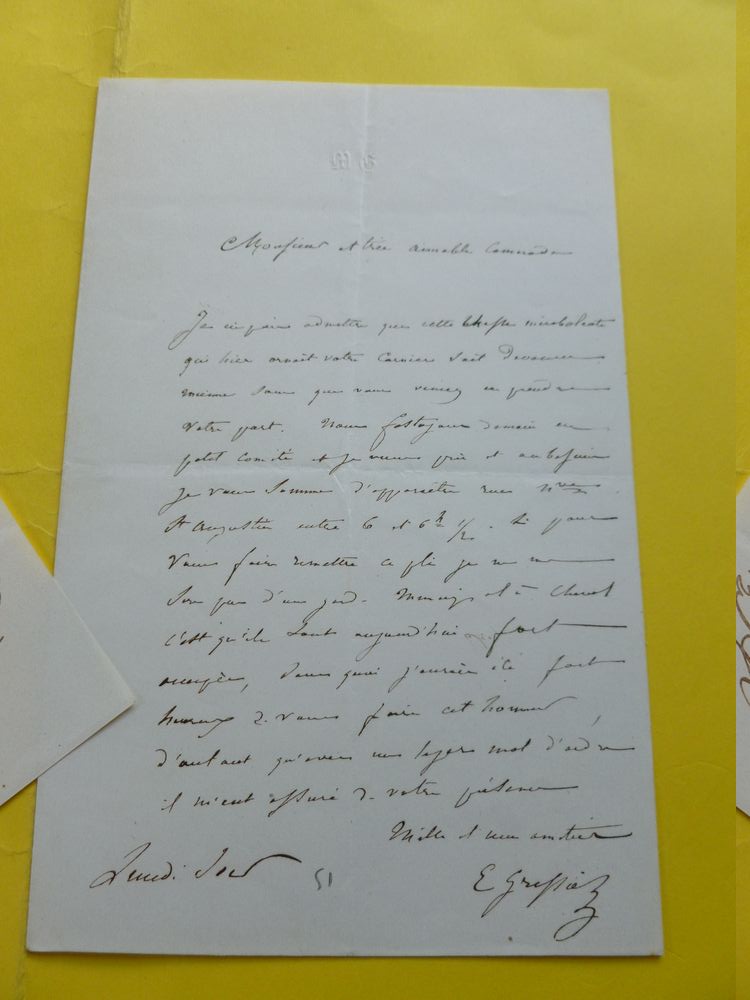 Monsieur et très aimable Camarade
Je ne puis admettre que cette mirobolante
qui hier ornait votre Carnier soit
même sans que vous veniez en prendre
votre part. Nous festoyons demain en
petit comité et je vous prie et au besoin
je vous somme d'apparaître rue Nve
St Augustin entre 6 et 6h 1/2. Si pour
vous faire remettre ce pli je ne me
sers pas d'un gard. et à Cheval
c'est qu'ils sont aujourd'hui fort
occupés, sans quoi j'aurais été fort
heureux de vous faire cet honneur,
d'autant qu'avec un léger mot d'ordre
il m'eut assuré de votre présence
Mille et une amitiés
Lundi soir
51
E Gressier